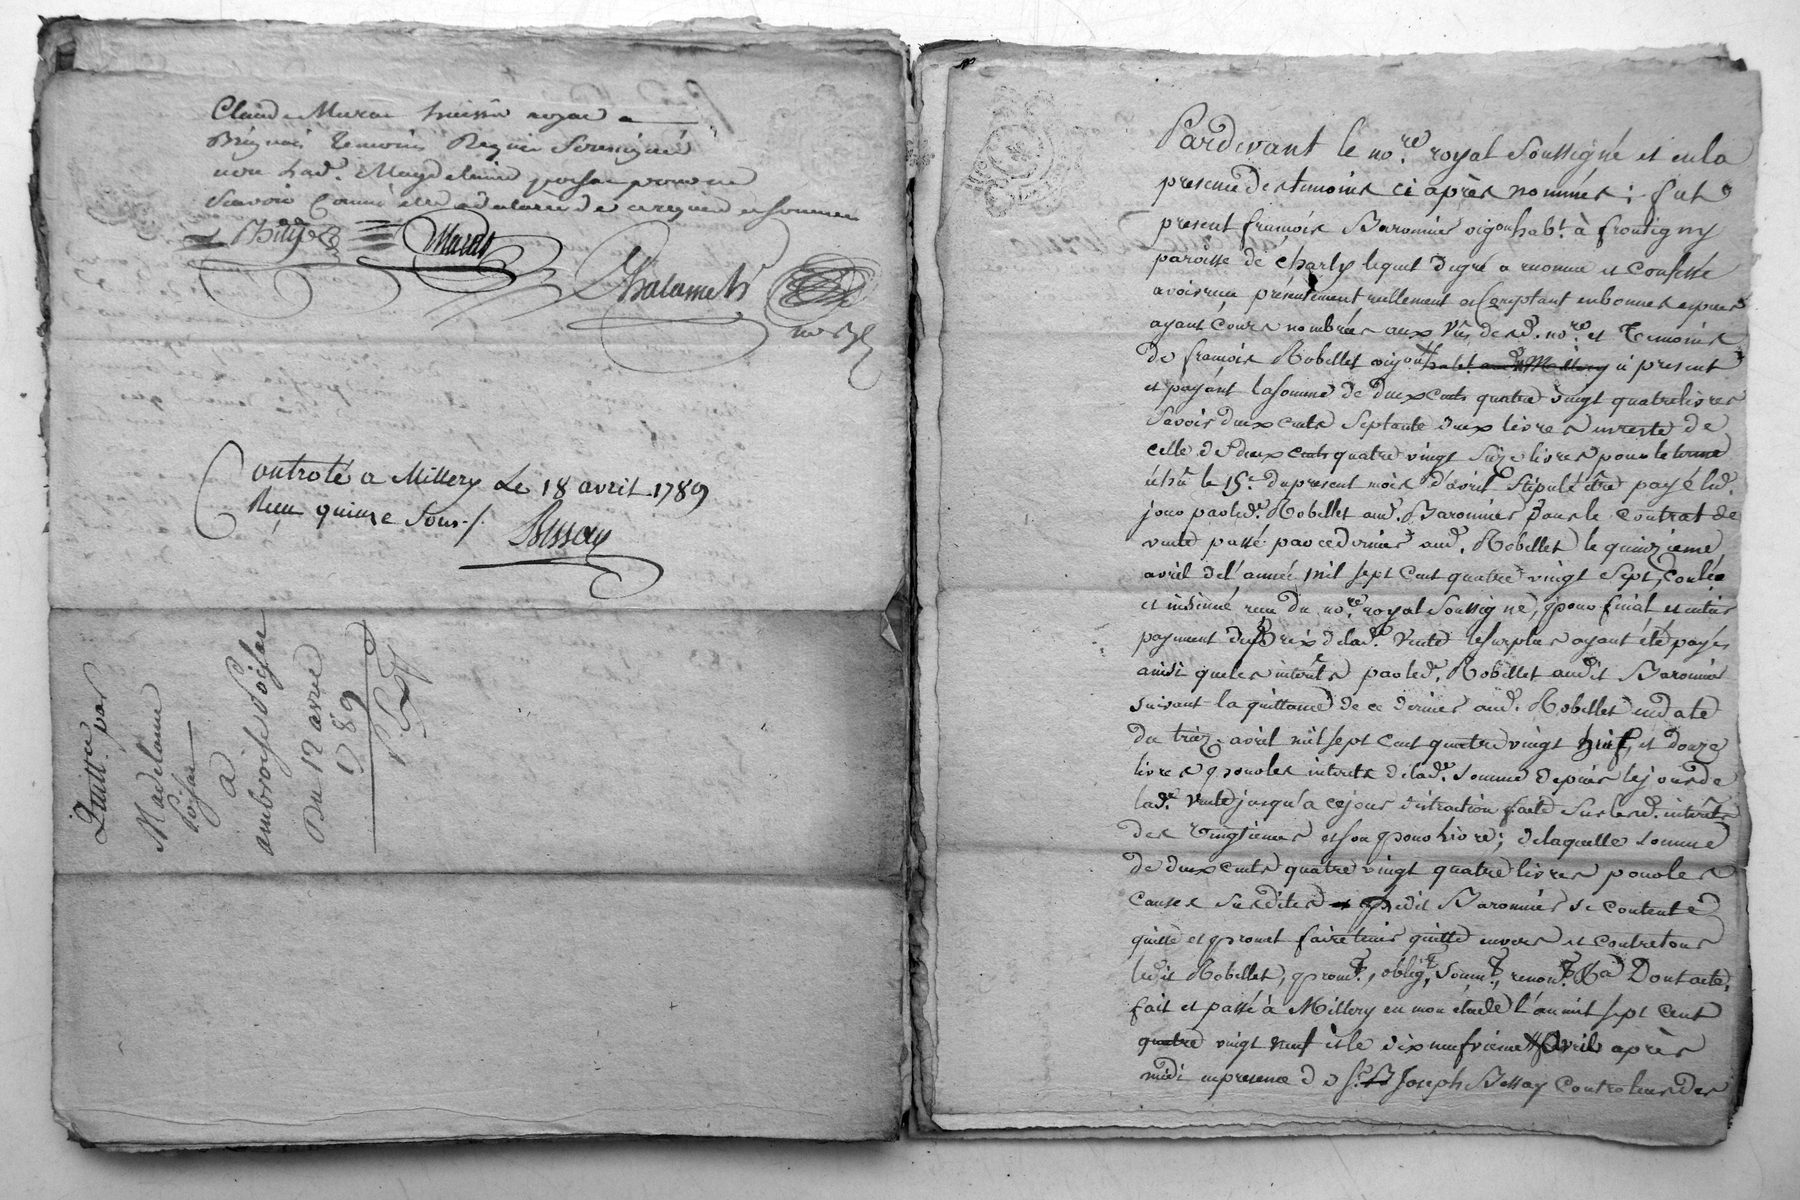 Claude Murac huissier royal a
Brignais temoins Requis Soussignés
non lad. Magdelaine poisac pour ne
Scavoir
Murat
Thalamet
Controlé a Millery Le 18 avril 1789
Recu quinze Sous./.
Bessay
Quittce par
Madelaine
Poisac
à
ambroise Poisac
Du 12 avril
1789
Pardevant le nore royal Soussigné et en la
presence des temoins ci après nommés; fut
present francois Baronnier vigon habt à frontigny
paroisse de Charly lequel de gré a reconnu et Confessé
avoir recu présentement reellement et Comptant en bonnes especes
ayant Cours nombrées aux vus desd. nore et Temoins
de francois Robellet vigon habt aud Millery à present
et payant la Somme de deux cents quatre vingt quatre livres
Savoir deux cents Septante deux livres en reste de
celle de deux cents quatre vingt Seize livres pour le terme
échu le 15e du present mois d'avril Stipulé être payé led.
jour par led. Robellet aud. Baronnier dans le Contrat de
vente passé par ce dernier aud. Robellet le quinzieme
avril de l'année mil sept cent quatre vingt Sept, Conlée
et insinué recu du nore royal Soussigné, pour final et entier
payment du prix de lad. Vente le Surplus ayant été payé
ainsi que les interets par led. Robellet audit Baronnier
Suivant la quittance de ce dernier aud. Robellet en date
du treize avril mil sept cent quatre vingt huit, et douze
livres pour les interets de lad. Somme depuis le jour de
lad.e Vente jusqu'a ce jour distraction faite Sur lesd. interets
des vingtiemes et sou pour livre; de laquelle Somme
de deux cents quatre vingt quatre livres pour les
Causes Susdites ledit Baronnier Se Contente
quitte et promet faire tenir quitte envers et contre tous
ledit Robellet, promt., obligt., Soumt., renont. &a Dont acte,
fait et passé à Millery en mon étude l'an mil sept cent
quatre vingt neuf et le dix neufvieme Avril après
midi en presence de Sr Joseph Bessay Controleur des